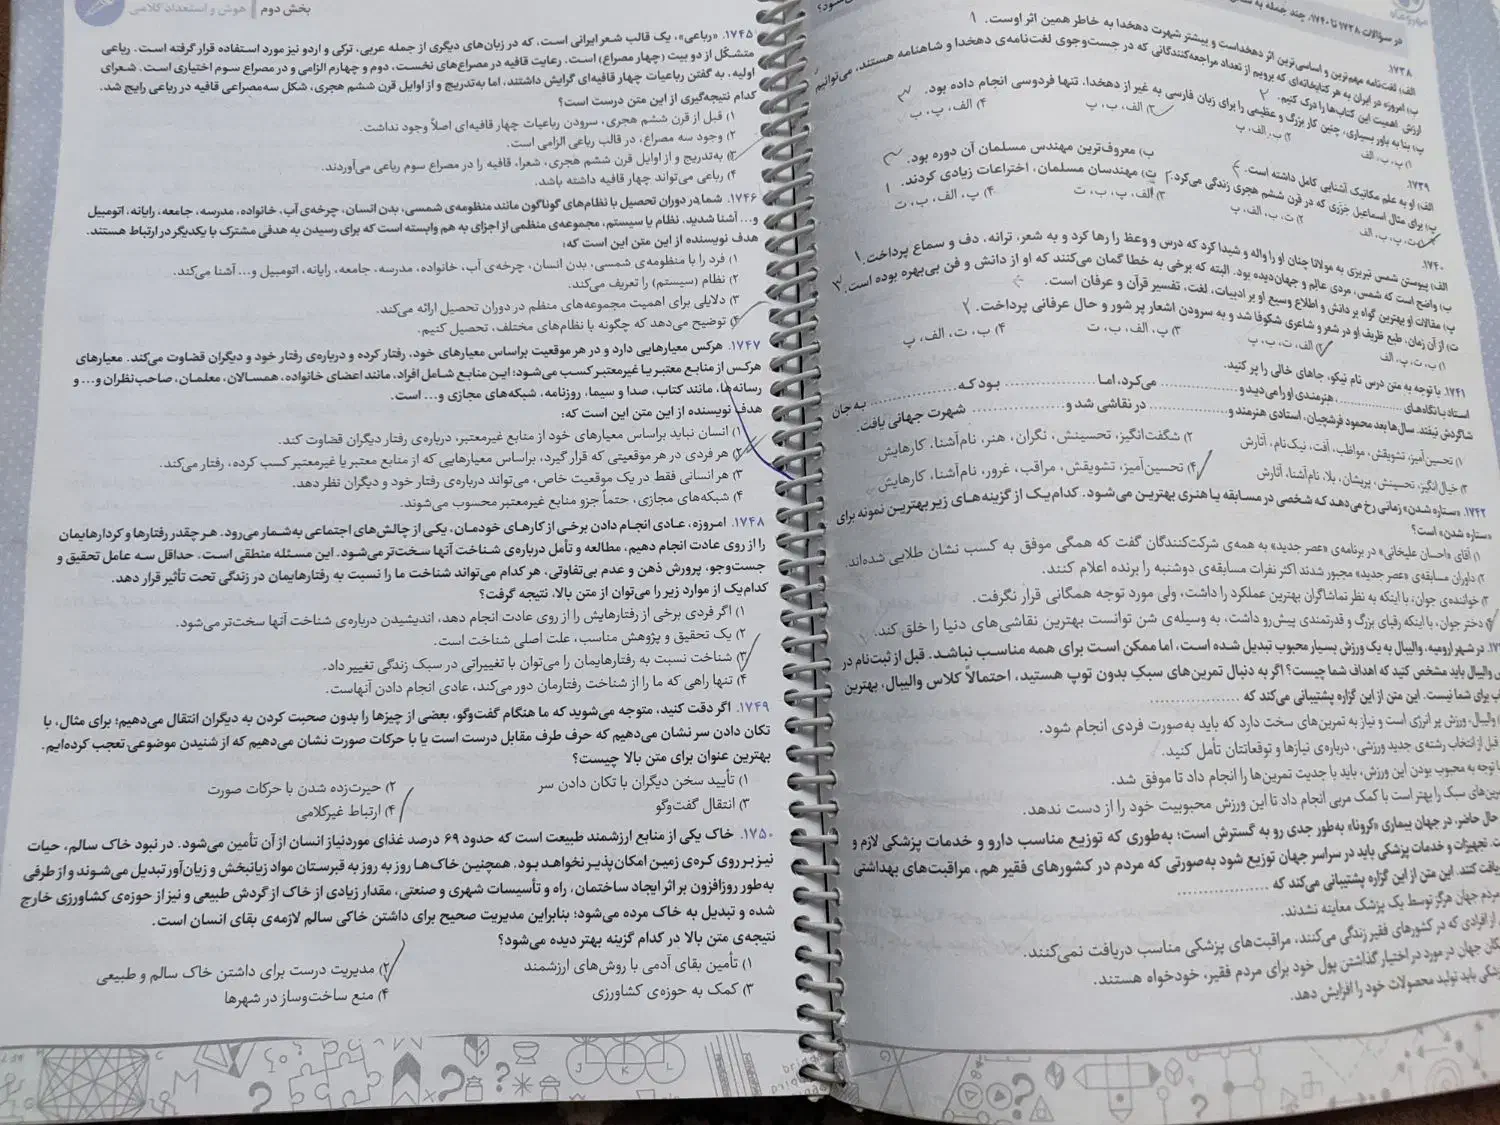 در سؤالات ۱۷۳۸ تا ۱۷۴۰، چند جمله به
۱۷۳۸.
الف) لغت‌نامه مهم‌ترین و اساسی‌ترین اثر دهخداست و بیشتر شهرت دهخدا به خاطر همین اثر اوست. ۱
ب) امروزه در ایران به هر کتابخانه‌ای که برویم از تعداد مراجعه‌کنندگانی که در جست‌وجوی لغت‌نامه‌ی دهخدا و شاهنامه هستند، می‌توانیم
ارزش، اهمیت این کتاب‌ها را درک کنیم. ۲
پ) بنا به باور بسیاری، چنین کار بزرگ و عظیمی را برای زبان فارسی به غیر از دهخدا، تنها فردوسی انجام داده بود. ۳
۱) پ، ب، الف
۲) ب، الف، پ
۳) الف، ب، پ
۴) الف، پ، ب
۱۷۳۹.
الف) او به علم مکانیک آشنایی کامل داشته است. ۴
ب) معروف‌ترین مهندس مسلمان آن دوره بود. ۳
پ) برای مثال اسماعیل جزری که در قرن ششم هجری زندگی می‌کرد. ۲
ت) مهندسان مسلمان، اختراعات زیادی کردند. ۱
۱) ت، پ، ب، الف
۲) ت، ب، الف، پ
۳) الف، پ، ب، ت
۴) پ، الف، ب، ت
۱۷۴۰.
الف) پیوستن شمس تبریزی به مولانا چنان او را واله و شیدا کرد که درس و وعظ را رها کرد و به شعر، ترانه، دف و سماع پرداخت. ۱
ب) واضح است که شمس، مردی عالِم و جهان‌دیده بود. البته که برخی به خطا گمان می‌کنند که او از دانش و فن بی‌بهره بوده است. ۳
پ) مقالات او بهترین گواه بر دانش و اطلاع وسیع او بر ادبیات، لغت، تفسیر قرآن و عرفان است.
ت) از آن زمان، طبع ظریف او در شعر و شاعری شکوفا شد و به سرودن اشعار پر شور و حال عرفانی پرداخت. ۲
۱) ب، ت، پ، الف
۲) الف، ت، ب، پ
۳) پ، الف، ب، ت
۴) ب، ت، الف، پ
۱۷۴۱. با توجه به متن درس نام نیکو، جاهای خالی را پر کنید.
استاد با نگاه‌های ............، هنرمندی او را می‌دید و ............ می‌کرد، اما ............ بود که ............ به جان
شاگردش نیفتد. سال‌ها بعد محمود فرشچیان، استادی هنرمند و ............ در نقاشی شد و ............ شهرت جهانی یافت.
۱) تحسین‌آمیز، تشویقش، مواظب، آفت، نیک‌نام، آثارش
۲) شگفت‌انگیز، تحسینش، نگران، هنر، نام‌آشنا، کارهایش
۳) خیال‌انگیز، تحسینش، پریشان، بلا، نام‌آشنا، آثارش
۴) تحسین‌آمیز، تشویقش، مراقب، غرور، نام‌آشنا، کارهایش
۱۷۴۲. «ستاره شدن» زمانی رخ می‌دهد که شخصی در مسابقه یا هنری بهترین می‌شود. کدام‌یک از گزینه‌های زیر بهترین نمونه برای
«ستاره شدن» است؟
۱) آقای «احسان علیخانی» در برنامه‌ی «عصر جدید» به همه‌ی شرکت‌کنندگان گفت که همگی موفق به کسب نشان طلایی شده‌اند.
۲) داوران مسابقه‌ی «عصر جدید» مجبور شدند اکثر نفرات مسابقه‌ی دوشنبه را برنده اعلام کنند.
۳) خواننده‌ی جوان، با اینکه به نظر تماشاگران بهترین عملکرد را داشت، ولی مورد توجه همگانی قرار نگرفت.
۴) دختر جوان، با اینکه رقبای بزرگ و قدرتمندی پیش‌رو داشت، به وسیله‌ی شن توانست بهترین نقاشی‌های دنیا را خلق کند.
در شهر ارومیه، والیبال به یک ورزش بسیار محبوب تبدیل شده است، اما ممکن است برای همه مناسب نباشد. قبل از ثبت‌نام در
والیبال باید مشخص کنید که اهداف شما چیست؟ اگر به دنبال تمرین‌های سبکِ بدون توپ هستید، احتمالاً کلاس والیبال، بهترین
برای شما نیست. این متن از این گزاره پشتیبانی می‌کند که ............
والیبال، ورزش پر انرژی است و نیاز به تمرین‌های سخت دارد که باید به‌صورت فردی انجام شود.
قبل از انتخاب رشته‌ی جدید ورزشی، درباره‌ی نیازها و توقعاتتان تأمل کنید.
با توجه به محبوب بودن این ورزش، باید با جدیت تمرین‌ها را انجام داد تا موفق شد.
تمرین‌های سبک را بهتر است با کمک مربی انجام داد تا این ورزش محبوبیت خود را از دست ندهد.
حال حاضر، در جهان بیماری «کرونا» به‌طور جدی رو به گسترش است؛ به‌طوری که توزیع مناسب دارو و خدمات پزشکی لازم و
تجهیزات و خدمات پزشکی باید در سراسر جهان توزیع شود به‌صورتی که مردم در کشورهای فقیر هم، مراقبت‌های بهداشتی
کنند. این متن از این گزاره پشتیبانی می‌کند که ............
مردم جهان هرگز توسط یک پزشک معاینه نشدند.
از افرادی که در کشورهای فقیر زندگی می‌کنند، مراقبت‌های پزشکی مناسب دریافت نمی‌کنند.
جهان در مورد در اختیار گذاشتن پول خود برای مردم فقیر، خودخواه هستند.
باید تولید محصولات خود را افزایش دهد.
بخش دوم | هوش و استعداد کلامی
۱۷۴۵. «رباعی»، یک قالب شعر ایرانی است، که در زبان‌های دیگری از جمله عربی، ترکی و اردو نیز مورد استفاده قرار گرفته است. رباعی
متشکّل از دو بیت (چهار مصراع) است. رعایت قافیه در مصراع‌های نخست، دوم و چهارم الزامی و در مصراع سوم اختیاری است. شعرای
اولیه، به گفتن رباعیات چهار قافیه‌ای گرایش داشتند، اما به‌تدریج و از اوایل قرن ششم هجری، شکل سه‌مصراعی قافیه در رباعی رایج شد.
کدام نتیجه‌گیری از این متن درست است؟
۱) قبل از قرن ششم هجری، سرودن رباعیات چهار قافیه‌ای اصلاً وجود نداشت.
۲) وجود سه مصراع، در قالب رباعی الزامی است.
۳) به‌تدریج و از اوایل قرن ششم هجری، شعرا، قافیه را در مصراع سوم رباعی می‌آوردند.
۴) رباعی می‌تواند چهار قافیه داشته باشد.
۱۷۴۶. شما در دوران تحصیل با نظام‌های گوناگون مانند منظومه‌ی شمسی، بدن انسان، چرخه‌ی آب، خانواده، مدرسه، جامعه، رایانه، اتومبیل
و... آشنا شدید. نظام یا سیستم، مجموعه‌ی منظمی از اجزای به هم وابسته است که برای رسیدن به هدفی مشترک با یکدیگر در ارتباط هستند.
هدف نویسنده از این متن این است که:
۱) فرد را با منظومه‌ی شمسی، بدن انسان، چرخه‌ی آب، خانواده، مدرسه، جامعه، رایانه، اتومبیل و... آشنا می‌کند.
۲) نظام (سیستم) را تعریف می‌کند.
۳) دلایلی برای اهمیت مجموعه‌های منظم در دوران تحصیل ارائه می‌کند.
۴) توضیح می‌دهد که چگونه با نظام‌های مختلف، تحصیل کنیم.
۱۷۴۷. هرکس معیارهایی دارد و در هر موقعیت براساس معیارهای خود، رفتار کرده و درباره‌ی رفتار خود و دیگران قضاوت می‌کند. معیارهای
هرکس از منابع معتبر یا غیرمعتبر کسب می‌شود؛ این منابع شامل افراد، مانند اعضای خانواده، همسالان، معلمان، صاحب‌نظران و... و
رسانه‌ها، مانند کتاب، صدا و سیما، روزنامه، شبکه‌های مجازی و... است.
هدف نویسنده از این متن این است که:
۱) انسان نباید براساس معیارهای خود از منابع غیرمعتبر، درباره‌ی رفتار دیگران قضاوت کند.
۲) هر فردی در هر موقعیتی که قرار گیرد، براساس معیارهایی که از منابع معتبر یا غیرمعتبر کسب کرده، رفتار می‌کند.
۳) هر انسانی فقط در یک موقعیت خاص، می‌تواند درباره‌ی رفتار خود و دیگران نظر دهد.
۴) شبکه‌های مجازی، حتماً جزو منابع غیرمعتبر محسوب می‌شوند.
۱۷۴۸. امروزه، عادی انجام دادن برخی از کارهای خودمان، یکی از چالش‌های اجتماعی به‌شمار می‌رود. هرچقدر رفتارها و کردارهایمان
را از روی عادت انجام دهیم، مطالعه و تأمل درباره‌ی شناخت آنها سخت‌تر می‌شود. این مسئله منطقی است. حداقل سه عامل تحقیق و
جست‌وجو، پرورش ذهن و عدم بی‌تفاوتی، هر کدام می‌تواند شناخت ما را نسبت به رفتارهایمان در زندگی تحت تأثیر قرار دهد.
کدام‌یک از موارد زیر را می‌توان از متن بالا، نتیجه گرفت؟
۱) اگر فردی برخی از رفتارهایش را از روی عادت انجام دهد، اندیشیدن درباره‌ی شناخت آنها سخت‌تر می‌شود.
۲) یک تحقیق و پژوهش مناسب، علت اصلی شناخت است.
۳) شناخت نسبت به رفتارهایمان را می‌توان با تغییراتی در سبک زندگی تغییر داد.
۴) تنها راهی که ما را از شناخت رفتارمان دور می‌کند، عادی انجام دادن آنهاست.
۱۷۴۹. اگر دقت کنید، متوجه می‌شوید که ما هنگام گفت‌وگو، بعضی از چیزها را بدون صحبت کردن به دیگران انتقال می‌دهیم؛ برای مثال، با
تکان دادن سر نشان می‌دهیم که حرف طرف مقابل درست است یا با حرکات صورت نشان می‌دهیم که از شنیدن موضوعی تعجب کرده‌ایم.
بهترین عنوان برای متن بالا چیست؟
۱) تأیید سخن دیگران با تکان دادن سر
۲) حیرت‌زده شدن با حرکات صورت
۳) انتقال گفت‌وگو
۴) ارتباط غیرکلامی
۱۷۵۰. خاک یکی از منابع ارزشمند طبیعت است که حدود ۶۹ درصد غذای موردنیاز انسان از آن تأمین می‌شود. در نبود خاک سالم، حیات
نیز بر روی کره‌ی زمین امکان‌پذیر نخواهد بود. همچنین خاک‌ها روز به روز به قبرستان مواد زیانبخش و زیان‌آور تبدیل می‌شوند و از طرفی
به‌طور روزافزون بر اثر ایجاد ساختمان، راه و تأسیسات شهری و صنعتی، مقدار زیادی از خاک از گردش طبیعی و نیز از حوزه‌ی کشاورزی خارج
شده و تبدیل به خاک مرده می‌شود؛ بنابراین مدیریت صحیح برای داشتن خاکی سالم لازمه‌ی بقای انسان است.
نتیجه‌ی متن بالا در کدام گزینه بهتر دیده می‌شود؟
۱) تأمین بقای آدمی با روش‌های ارزشمند
۲) مدیریت درست برای داشتن خاک سالم و طبیعی
۳) کمک به حوزه‌ی کشاورزی
۴) منع ساخت‌وساز در شهرها
J K L